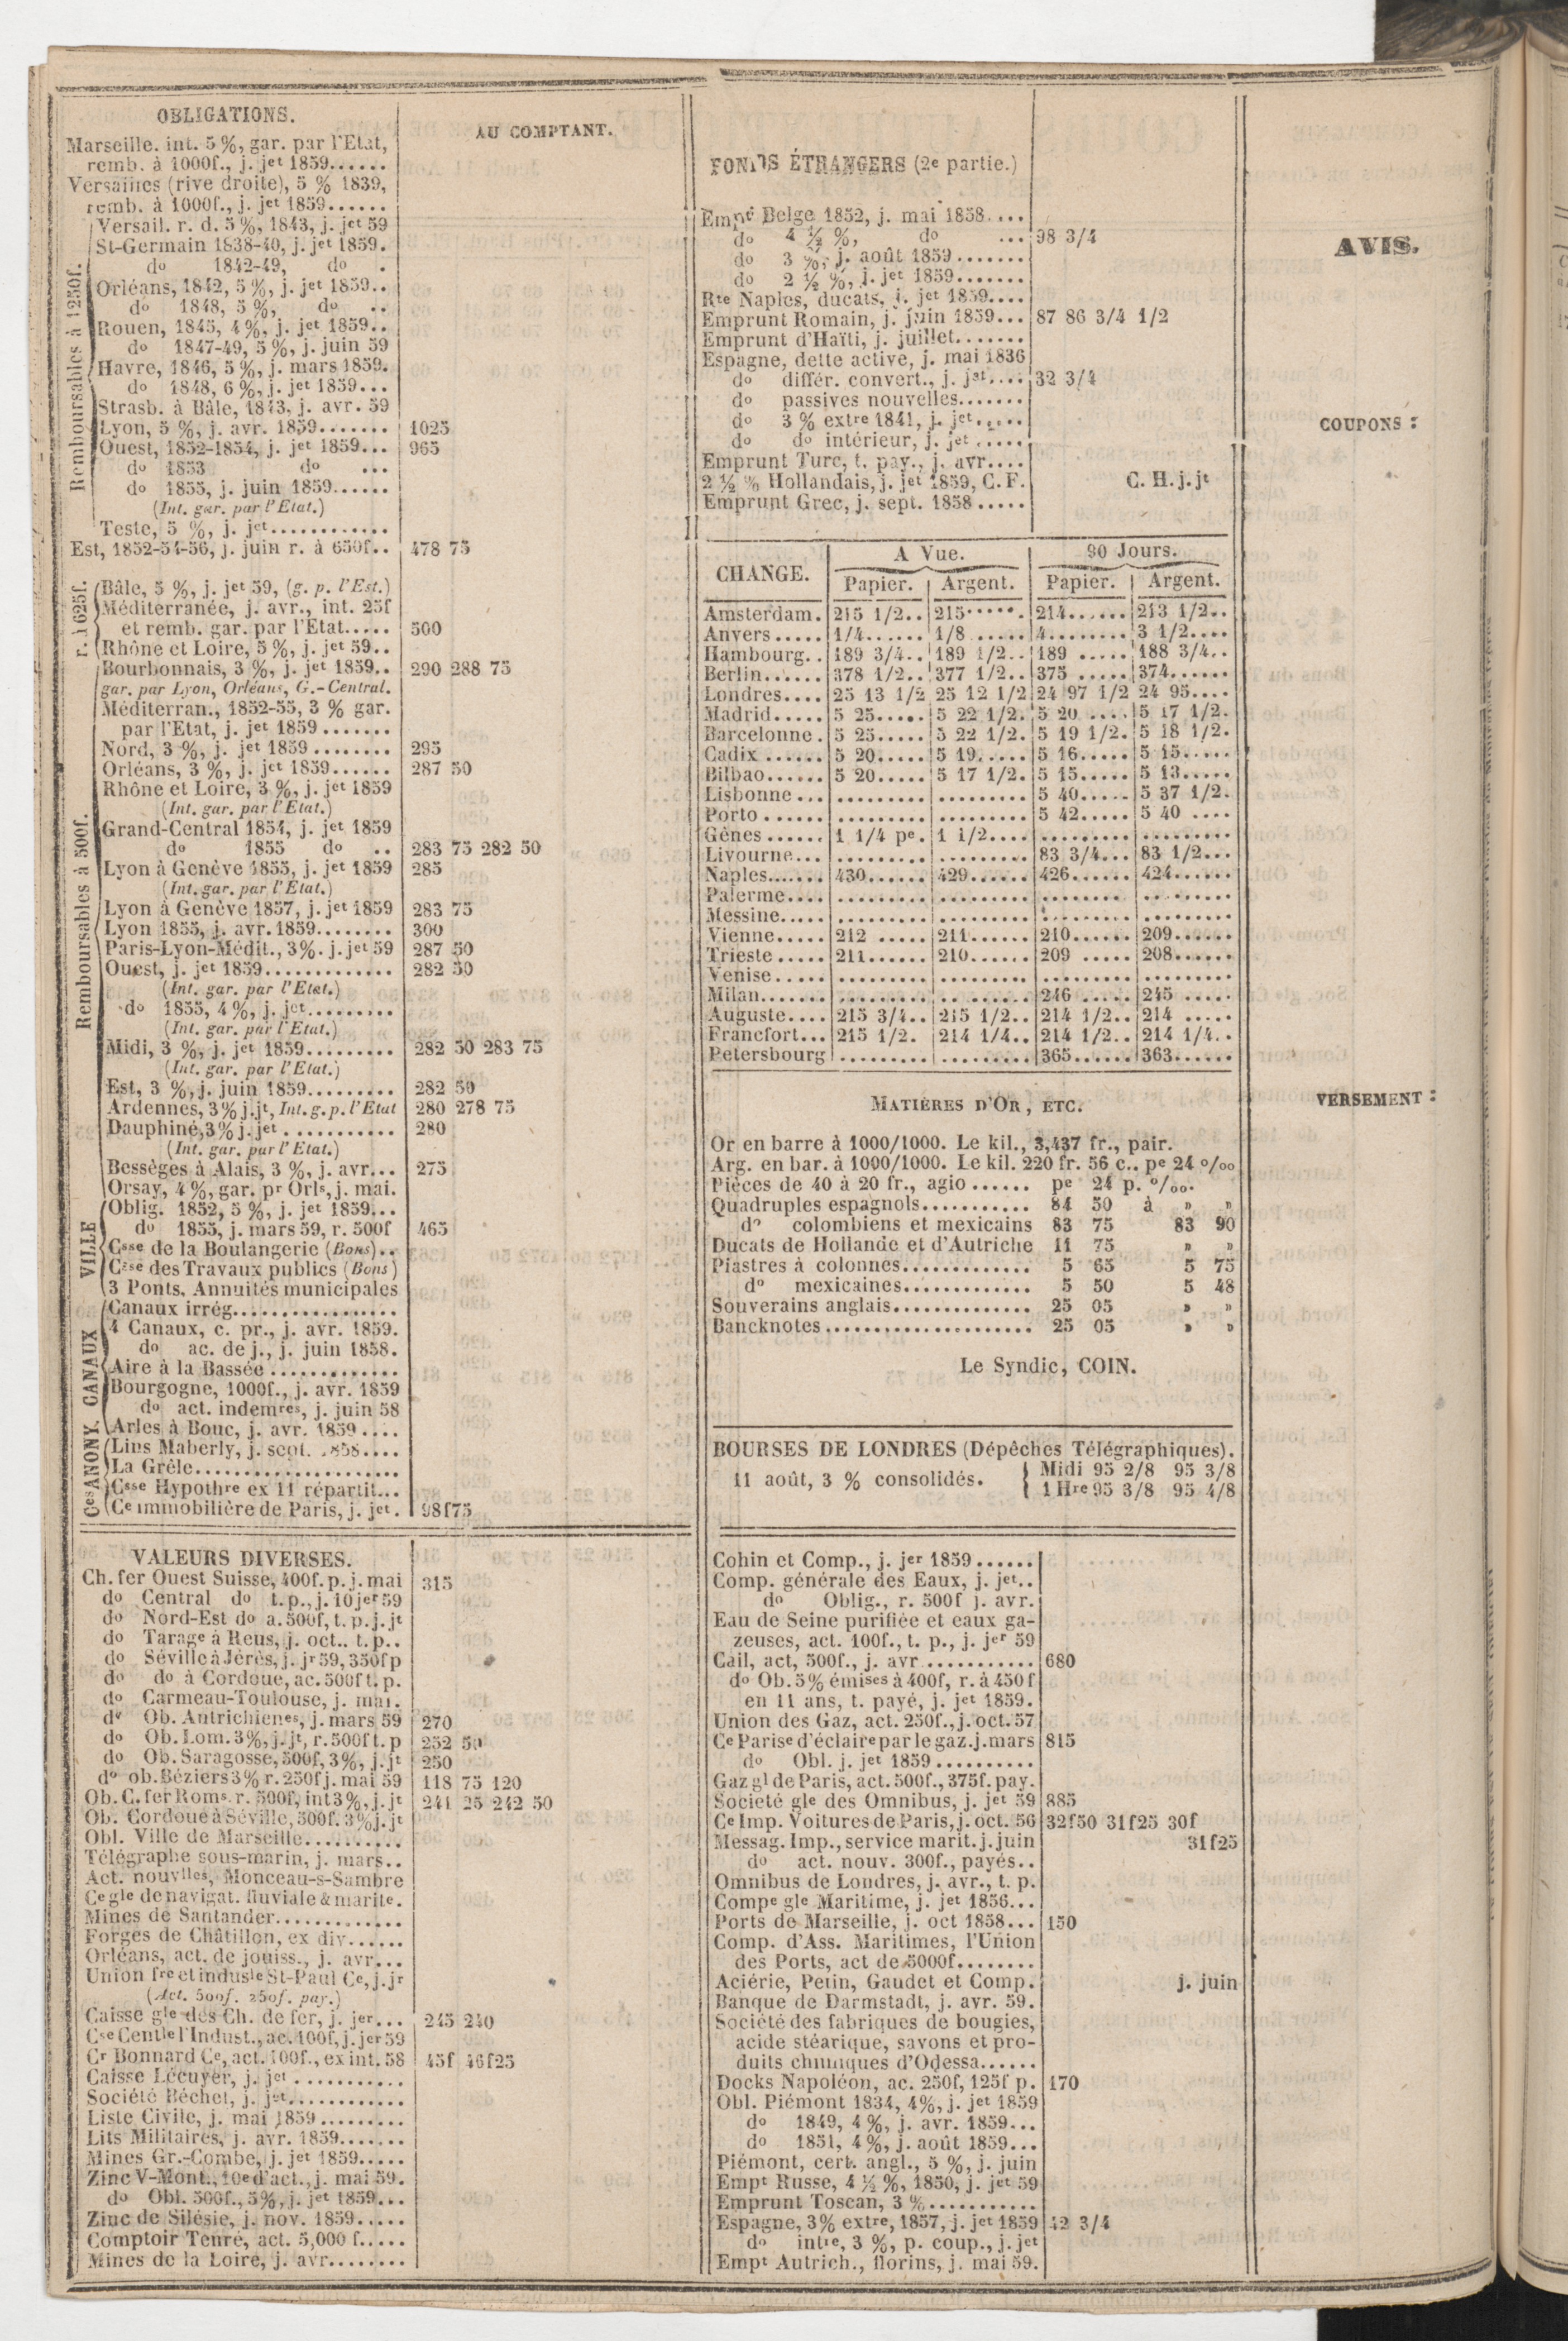 OBLIGATIONS.
AU COMPTANT.
Marseille. int. 5 %, gar. par l'Etat,
remb. à 1000f., j. jet 1859......
Versailles (rive droite), 5 % 1839,
remb. à 1000f., j. jet 1859......
Remboursables à 1250f.
Versail. r. d. 5 %, 1843, j. jet 59
St-Germain 1838-40, j. jet 1859.
do 1842-49, do .
Orléans, 1842, 5 %, j. jet 1859..
do 1848, 5 %, do ..
Rouen, 1845, 4 %, j. jet 1859..
do 1847-49, 5 %, j. juin 59
Havre, 1846, 5 %, j. mars 1859.
do 1848, 6 %, j. jet 1859...
Strasb. à Bâle, 1843, j. avr. 59
Lyon, 5 %, j. avr. 1859....... 1025
Ouest, 1852-1854, j. jet 1859... 965
do 1853 do ...
do 1855, j. juin 1859......
(Int. gar. par l'Etat.)
Teste, 5 %, j. jet............
Est, 1852-54-56, j. juin r. à 650f.. 478 75
r. à 625f.
Bâle, 5 %, j. jet 59, (g. p. l'Est.)
Méditerranée, j. avr., int. 25f
et remb. gar. par l'Etat..... 500
Rhône et Loire, 5 %, j. jet 59..
Remboursables à 500f.
Bourbonnais, 3 %, j. jet 1859.. 290 288 75
gar. par Lyon, Orléans, G.-Central.
Méditerran., 1852-55, 3 % gar.
par l'Etat, j. jet 1859.......
Nord, 3 %, j. jet 1859........ 295
Orléans, 3 %, j. jet 1859...... 287 50
Rhône et Loire, 3 %, j. jet 1859
(Int. gar. par l'Etat.)
Grand-Central 1854, j. jet 1859
do 1855 do .. 283 75 282 50
Lyon à Genève 1855, j. jet 1859 285
(Int. gar. par l'Etat.)
Lyon à Genève 1857, j. jet 1859 283 75
Lyon 1855, j. avr. 1859........ 300
Paris-Lyon-Médit., 3%. j. jet 59 287 50
Ouest, j. jet 1859............. 282 50
(Int. gar. par l'Etat.)
do 1855, 4 %, j. jet.........
(Int. gar. par l'Etat.)
Midi, 3 %, j. jet 1859......... 282 50 283 75
(Int. gar. par l'Etat.)
Est, 3 %, j. juin 1859......... 282 50
Ardennes, 3% j. jt, Int. g. p. l'Etat 280 278 75
Dauphiné, 3% j. jet........... 280
(Int. gar. par l'Etat.)
Bessèges à Alais, 3 %, j. avr... 275
Orsay, 4 %, gar. pr Orls, j. mai.
VILLE
Oblig. 1852, 5 %, j. jet 1859...
do 1855, j. mars 59, r. 500f 465
Csse de la Boulangerie (Bons)..
Csse des Travaux publics (Bons)
3 Ponts, Annuités municipales
CANAUX
Canaux irrég.................
4 Canaux, c. pr., j. avr. 1859.
do ac. de j., j. juin 1858.
Aire à la Bassée.............
Bourgogne, 1000f., j. avr. 1859
do act. indemres, j. juin 58
Arles à Bouc, j. avr. 1859....
Ces ANONY.
Lins Maberly, j. sept. 1858....
La Grêle.....................
Csse Hypothre ex 11 répartit...
Ce immobilière de Paris, j. jet. 98f75
VALEURS DIVERSES.
Ch. fer Ouest Suisse, 400f. p. j. mai 315
do Central do t. p., j. 10 jer 59
do Nord-Est do a. 500f, t. p. j. jt
do Tarage à Reus, j. oct.. t. p..
do Séville à Jérès, j. jr 59, 350f p
do do à Cordoue, ac. 500f t. p.
do Carmeau-Toulouse, j. mai.
do Ob. Autrichienes, j. mars 59 270
do Ob. Lom. 3%, j. jt, r. 500f t. p 252 50
do Ob. Saragosse, 500f, 3%, j. jt 250
do ob. Béziers 3% r. 250f j. mai 59 118 75 120
Ob. C. fer Roms. r. 500f, int 3%, j. jt 241 25 242 50
Ob. Cordoue à Séville, 500f. 3% j. jt
Obl. Ville de Marseille..........
Télégraphe sous-marin, j. mars..
Act. nouvlles, Monceau-s-Sambre
Ce gle de navigat. fluviale & marite.
Mines de Santander.............
Forges de Châtillon, ex div......
Orléans, act. de jouiss., j. avr...
Union fre et indusle St-Paul Ce, j. jr
(Act. 500f. 250f. pay.)
Caisse gle des Ch. de fer, j. jer... 245 240
Cse Centle l'Indust., ac. 100f, j. jer 59
Cr Bonnard Ce, act. 100f., ex int. 58 45f 46f25
Caisse Lécuyer, j. jet...........
Société Béchet, j. jet............
Liste Civile, j. mai 1859.........
Lits Militaires, j. avr. 1859.......
Mines Gr.-Combe, j. jet 1859.....
Zinc V-Mont., 10e d'act., j. mai 59.
do Obl. 500f., 5%, j. jet 1859...
Zinc de Silésie, j. nov. 1859.....
Comptoir Tenré, act. 5,000 f.....
Mines de la Loire, j. avr........
FONDS ÉTRANGERS (2e partie.)
Empt Belge 1852, j. mai 1858....
do 4 ½ %, do ... 98 3/4
do 3 %, j. août 1859.......
do 2 ½ %, j. jet 1859.......
Rte Naples, ducats, j. jet 1859....
Emprunt Romain, j. juin 1859... 87 86 3/4 1/2
Emprunt d'Haïti, j. juillet.......
Espagne, dette active, j. mai 1836
do différ. convert., j. jet.... 32 3/4
do passives nouvelles.......
do 3 % extre 1841, j. jet.....
do do intérieur, j. jet.....
Emprunt Turc, t. pay., j. avr....
2 ½ % Hollandais, j. jet 1859, C. F. C. H. j. jt
Emprunt Grec, j. sept. 1858.....
CHANGE. A Vue. 90 Jours.
Papier. Argent. Papier. Argent.
Amsterdam. 215 1/2.. 215...... 214...... 213 1/2..
Anvers..... 1/4...... 1/8...... 4........ 3 1/2....
Hambourg.. 189 3/4.. 189 1/2.. 189..... 188 3/4..
Berlin...... 378 1/2.. 377 1/2.. 375..... 374......
Londres.... 25 13 1/2 25 12 1/2 24 97 1/2 24 95....
Madrid..... 5 25..... 5 22 1/2. 5 20.... 5 17 1/2.
Barcelonne. 5 25..... 5 22 1/2. 5 19 1/2. 5 18 1/2.
Cadix...... 5 20..... 5 19..... 5 16..... 5 15.....
Bilbao...... 5 20..... 5 17 1/2. 5 15..... 5 13.....
Lisbonne... ......... ......... 5 40..... 5 37 1/2.
Porto...... ......... ......... 5 42..... 5 40....
Gênes...... 1 1/4 pe. 1 1/2.... ......... .........
Livourne... ......... ......... 83 3/4... 83 1/2...
Naples....... 430...... 429...... 426...... 424......
Palerme.... ......... ......... ........ .........
Messine..... ......... ......... ........ .........
Vienne..... 212..... 211...... 210...... 209......
Trieste..... 211...... 210...... 209..... 208......
Venise..... ......... ......... ......... .........
Milan....... ......... ......... 246..... 245.....
Auguste.... 215 3/4.. 215 1/2.. 214 1/2.. 214.....
Francfort... 215 1/2. 214 1/4.. 214 1/2.. 214 1/4..
Petersbourg ......... ......... 365...... 363......
MATIÈRES D'OR, ETC.
Or en barre à 1000/1000. Le kil., 3,437 fr., pair.
Arg. en bar. à 1000/1000. Le kil. 220 fr. 56 c.. pe 24 o/oo
Pièces de 40 à 20 fr., agio...... pe 24 p. o/oo.
Quadruples espagnols........... 84 50 à » »
do colombiens et mexicains 83 75 83 90
Ducats de Hollande et d'Autriche 11 75 » »
Piastres à colonnes............. 5 65 5 75
do mexicaines............. 5 50 5 48
Souverains anglais.............. 25 05 » »
Bancknotes..................... 25 05 » »
Le Syndic, COIN.
BOURSES DE LONDRES (Dépêches Télégraphiques).
11 août, 3 % consolidés. Midi 95 2/8 95 3/8
1 Hre 95 3/8 95 4/8
Cohin et Comp., j. jer 1859......
Comp. générale des Eaux, j. jet..
do Oblig., r. 500f j. avr.
Eau de Seine purifiée et eaux ga-
zeuses, act. 100f., t. p., j. jer 59
Cail, act, 500f., j. avr........... 680
do Ob. 5% émises à 400f, r. à 450f
en 11 ans, t. payé, j. jet 1859.
Union des Gaz, act. 250f., j. oct. 57
Ce Parise d'éclaire par le gaz. j. mars 815
do Obl. j. jet 1859..........
Gaz gl de Paris, act. 500f., 375f. pay.
Société gle des Omnibus, j. jet 59 885
Ce Imp. Voitures de Paris, j. oct. 56 32f50 31f25 30f
Messag. Imp., service marit. j. juin 31f25
do act. nouv. 300f., payés..
Omnibus de Londres, j. avr., t. p.
Compe gle Maritime, j. jet 1856...
Ports de Marseille, j. oct 1858... 150
Comp. d'Ass. Maritimes, l'Union
des Ports, act de 5000f........
Aciérie, Petin, Gaudet et Comp. j. juin
Banque de Darmstadt, j. avr. 59.
Société des fabriques de bougies,
acide stéarique, savons et pro-
duits chimiques d'Odessa......
Docks Napoléon, ac. 250f, 125f p. 170
Obl. Piémont 1834, 4%, j. jet 1859
do 1849, 4 %, j. avr. 1859...
do 1851, 4 %, j. août 1859...
Piémont, cert. angl., 5 %, j. juin
Empt Russe, 4 ½ %, 1850, j. jet 59
Emprunt Toscan, 3 %...........
Espagne, 3% extre, 1857, j. jet 1859 42 3/4
do intre, 3 %, p. coup., j. jet
Empt Autrich., florins, j. mai 59.
AVIS.
COUPONS :
VERSEMENT :